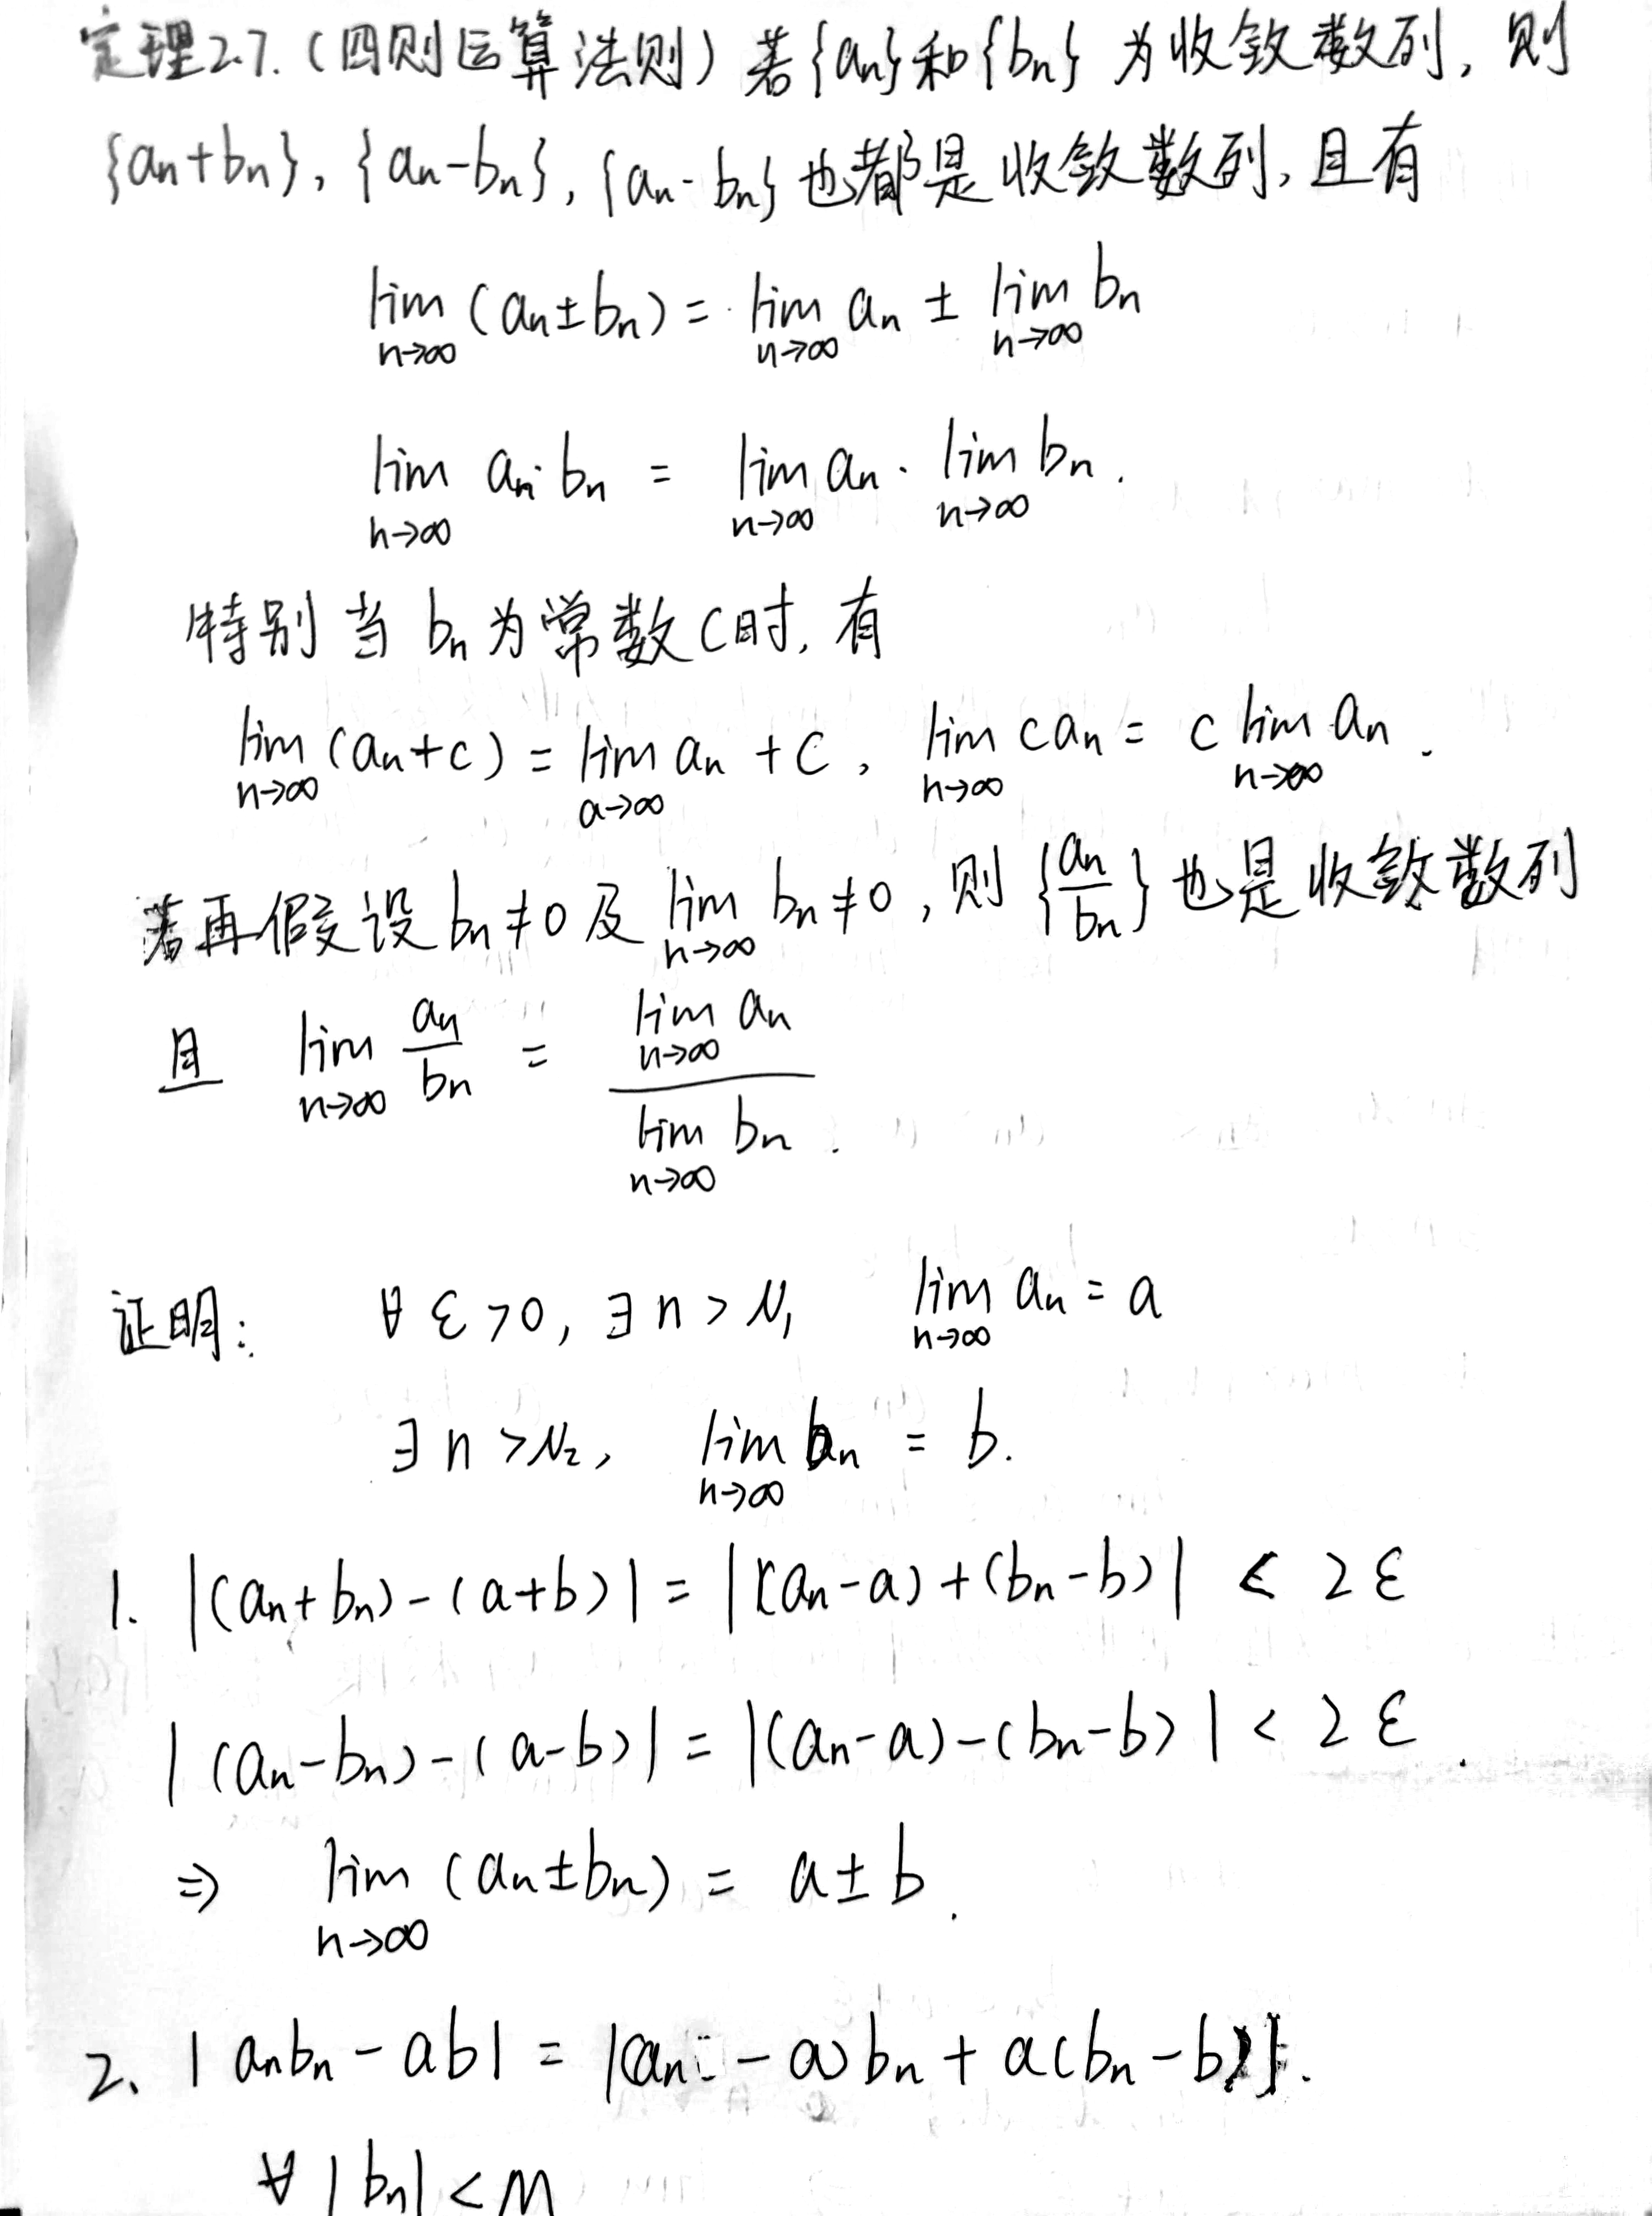 定理2.7.(四则运算法则)若{an}和{bn}为收敛数列,则
{an+bn},{an-bn},{an·bn}也都是收敛数列,且有
lim n→∞ (an±bn) = lim n→∞ an ± lim n→∞ bn
lim n→∞ an·bn = lim n→∞ an · lim n→∞ bn.
特别当bn为常数c时,有
lim n→∞ (an+c) = lim a→∞ an + c, lim n→∞ can = c lim n→∞ an.
若再假设bn≠0及 lim n→∞ bn≠0,则{an/bn}也是收敛数列
且 lim n→∞ an/bn = lim n→∞ an / lim n→∞ bn.
证明: ∀ε>0, ∃n>N1 lim n→∞ an = a
∃n>N2, lim n→∞ bn = b.
1. |(an+bn)-(a+b)| = |(an-a)+(bn-b)| < 2ε
|(an-bn)-(a-b)| = |(an-a)-(bn-b)| < 2ε.
⇒ lim n→∞ (an±bn) = a±b.
2. |anbn-ab| = |(an-a)bn+a(bn-b)|.
∀|bn|<M